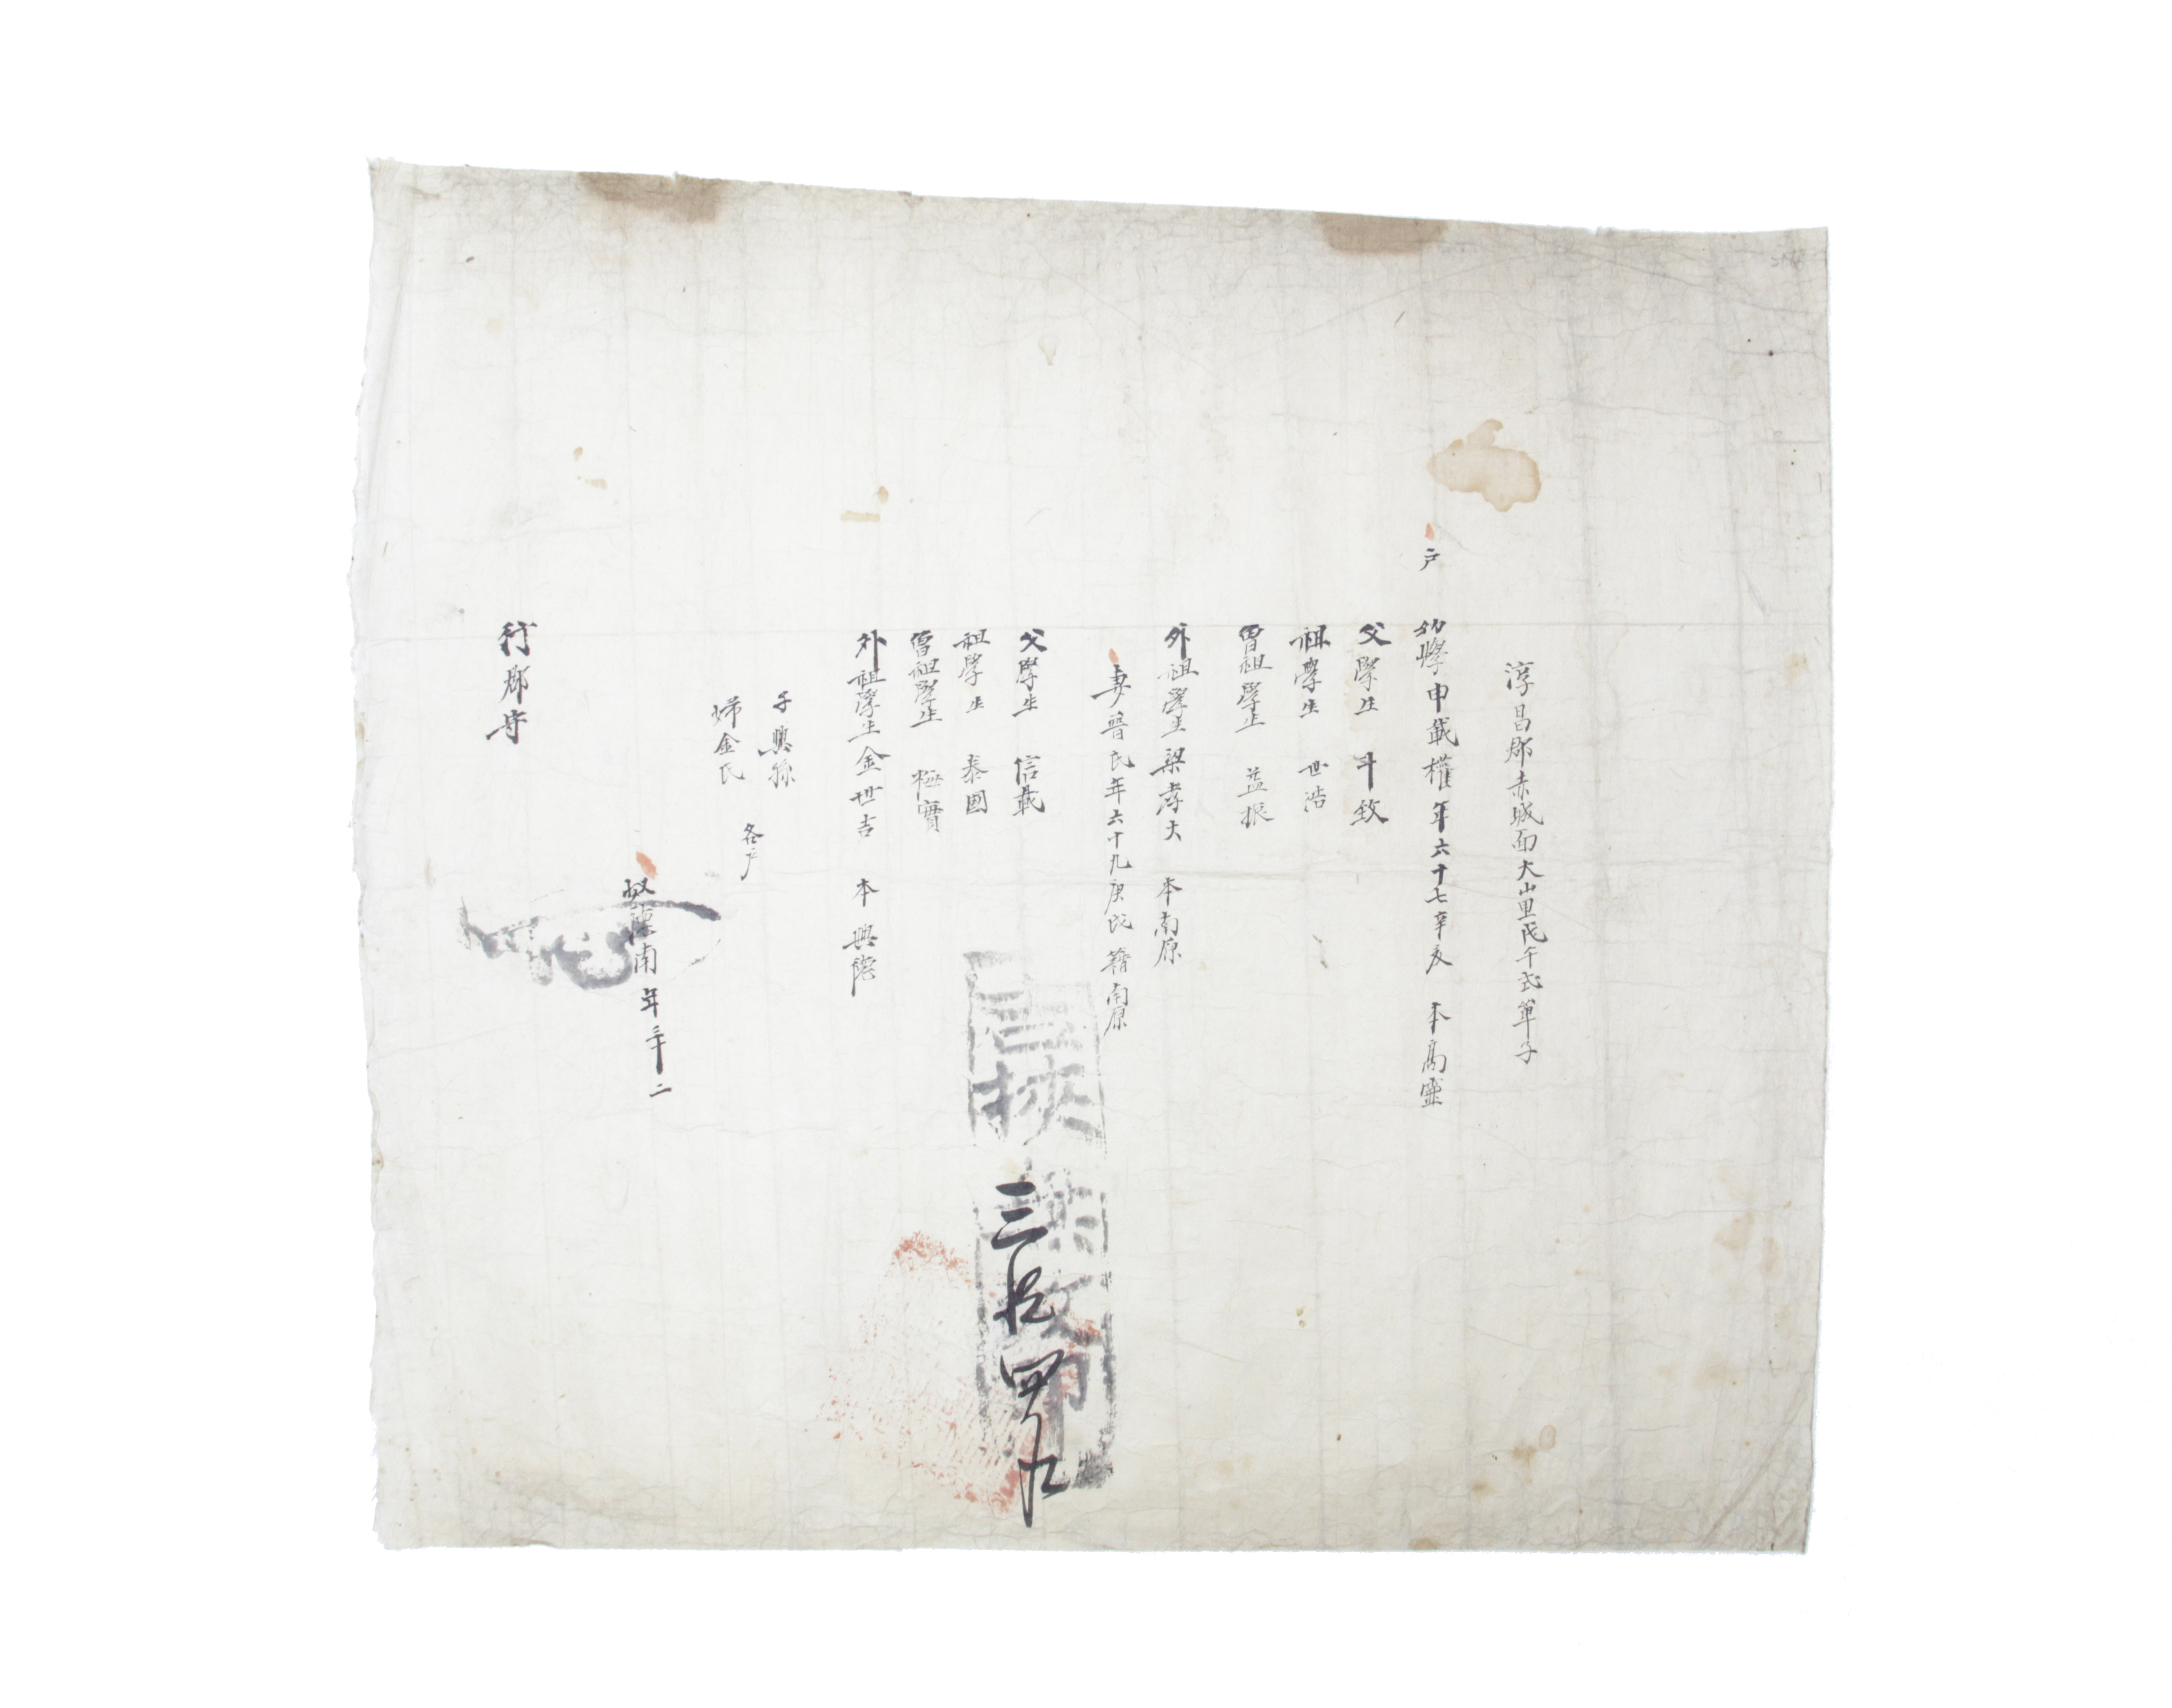 淳昌郡赤城面大山里戊午式單子
戶
幼學申載權年六十七辛亥 本高靈
父學生 斗致
祖學生 世浩
曾祖學生 益振
外祖學生梁孝大 本南原
妻晉氏年六十九庚戌 籍南原
父學生 信載
祖學生 泰國
曾祖學生 實
外祖學生金世吉 本興
子興孫
婦金氏
各戶
奴 南年三十二
行郡守
挾
改印
三 四九